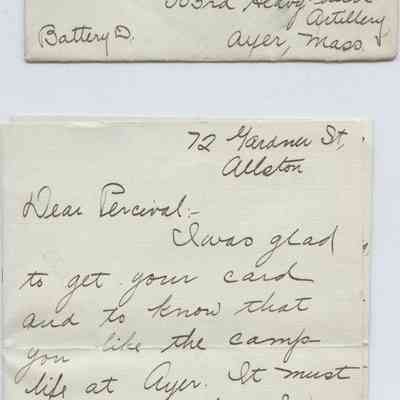 303rd Heavy
Artillery
Battery D.
Ayer, Mass.
72 Gardner St,
Allston
Dear Percival:-
I was glad
to get your card
and to know that
you like the camp
life at Ayer. It must